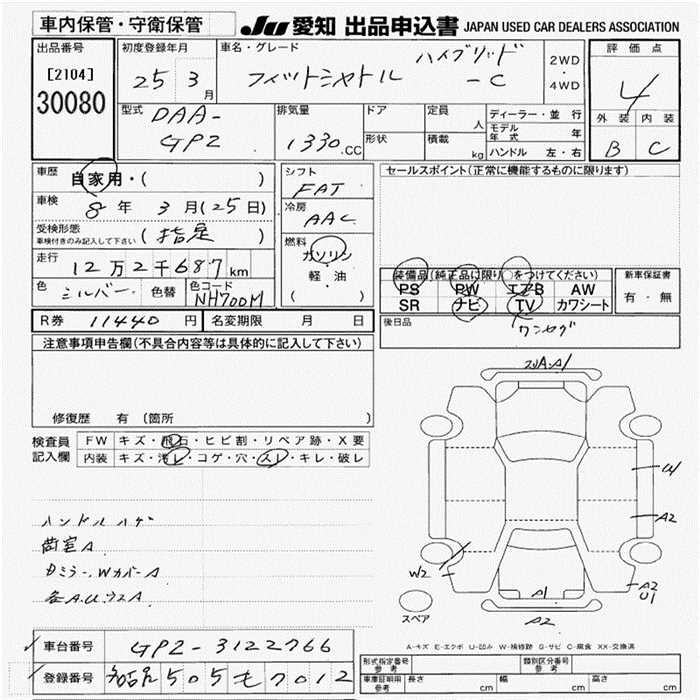 車内保管・守衛保管
JU 愛知 出品申込書 JAPAN USED CAR DEALERS ASSOCIATION
出品番号
[2104]
30080
初度登録年月
25 3月
車名・グレード
フィットシャトル ハイブリッド -C
2WD
・
4WD
評価点
4
外装 内装
B C
型式
DAA-
GP2
排気量
1330.CC
ドア
形状
定員 人
積載 kg
ディーラー・並行
モデル年式 年
ハンドル 左・右
車歴
自家用・( )
車検
8年 3月(25日)
受検形態
車検付きのみ記入して下さい
(指定)
走行
12万2千687km
色 シルバー 色替 色コード NH700M
シフト
FAT
冷房
AAC
燃料
ガソリン
・
軽・油
( )
セールスポイント(正常に機能するものに限ります)
装備品(純正品に限り○をつけてください)
PS PW エアB AW
SR ナビ TV カワシート
ワンセグ
新車保証書
有・無
後日品
R券 11440円 名変期限 月 日
注意事項申告欄(不具合内容等は具体的に記入して下さい)
修復歴 有 (箇所
検査員記入欄
FW キズ・飛石・ヒビ割・リペア跡・X要
内装 キズ・汚レ・コゲ・穴・スレ・キレ・破レ
ハンドルハゲ
荷室A
Dミラー、WカバーA
各A.U.ウスA
A1
U1
A2
W2
A1
A2
U1
A2
スペア
A-キズ E-エクボ U-凹み W-補修跡 S-サビ C-腐食 XX-交換済
車台番号 GP2-3122766
登録番号 505 も 7012
形式指定番号 参考
類別区分番号 参考
車庫証明用 参考
長さ cm
幅 cm
高さ cm